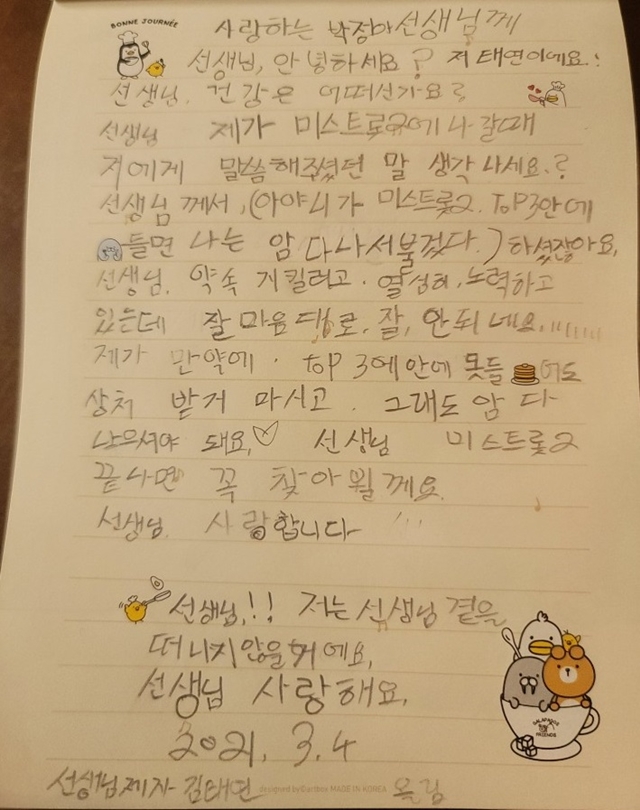 BONNE JOURNÉE
사랑하는 박정아선생님께
선생님, 안녕하세요? 저 태연이에요!
선생님. 건강은 어떠신가요?
선생님 제가 미스트롯2에 나갈때
저에게 말씀해주셨던 말 생각나세요?
선생님께서, (아야 니가 미스트롯2. TOP3안에
들면 나는 암 다나서불겄다.) 하셨잖아요,
선생님. 약속 지킬려고. 열심히, 노력하고
있는데 잘 마음대로, 잘, 안되네요,
제가 만약에. TOP 3에 안에 못들어도
상처 받거 마시고. 그래도 암 다
나으셔야 돼요, 선생님 미스트롯2
끝나면 꼭 찾아뵐께요.
선생님. 사랑합니다
선생님,!! 저는 선생님 곁을
떠나지 않을거에요,
선생님 사랑해요,
2021. 3. 4
선생님제자 김태연 올림
designed by artbox MADE IN KOREA
FRIENDS